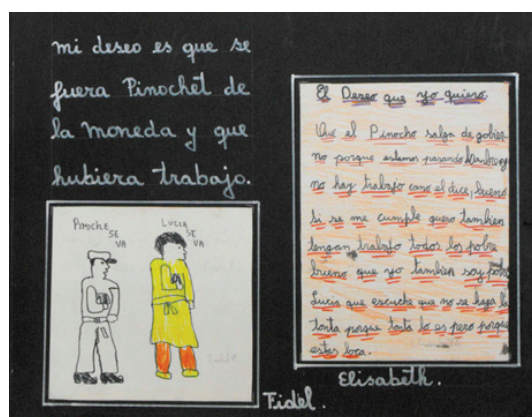 mi deseo es que se
fuera Pinochet de
la moneda y que
hubiera trabajo.
PINOCHE
SE
VA
LUCIA
SE
VA
Fidel.
El Deseo que yo quiero.
Que el Pinocho salga de gobier
no porque estamos pasando
no hay trabajo como el dice, bueno
si se me cumple quero tambien
tengan trabajo todos los pobre
bueno que yo tambien soy pobre
Lucia que escuche que no se haga la
tonta porque tonta lo es pero porque
estas loca.
Elisabeth.